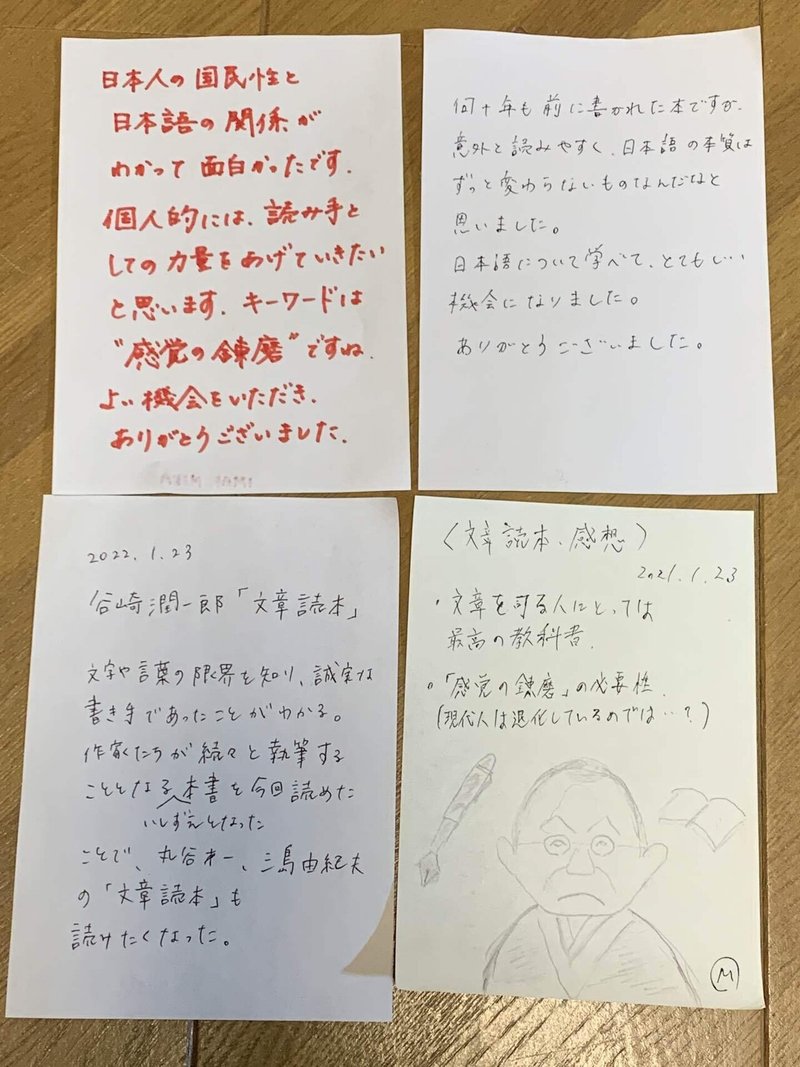 日本人の国民性と
日本語の関係が
わかって面白かったです.
個人的には、読み手と
しての力量をあげていきたい
と思います. キーワードは
"感覚の錬磨"ですね.
よい機会をいただき、
ありがとうございました.
何十年も前に書かれた本ですが、
意外と読みやすく、日本語の本質は
ずっと変わらないものなんだなと
思いました。
日本語について学べて、とてもいい
機会になりました。
ありがとうございました。
2022.1.23
谷崎潤一郎「文章読本」
文字や言葉の限界を知り、誠実な
書き手であったことがわかる。
作家たちが続々と執筆する
こととなる本書を今回読めた
いしずえとなった
ことで、丸谷才一、三島由紀夫
の「文章読本」も
読みたくなった。
〈文章読本、感想〉
2021.1.23
・文章を司る人にとっては
最高の教科書.
・「感覚の錬磨」の必要性.
(現代人は退化しているのでは…？)
M